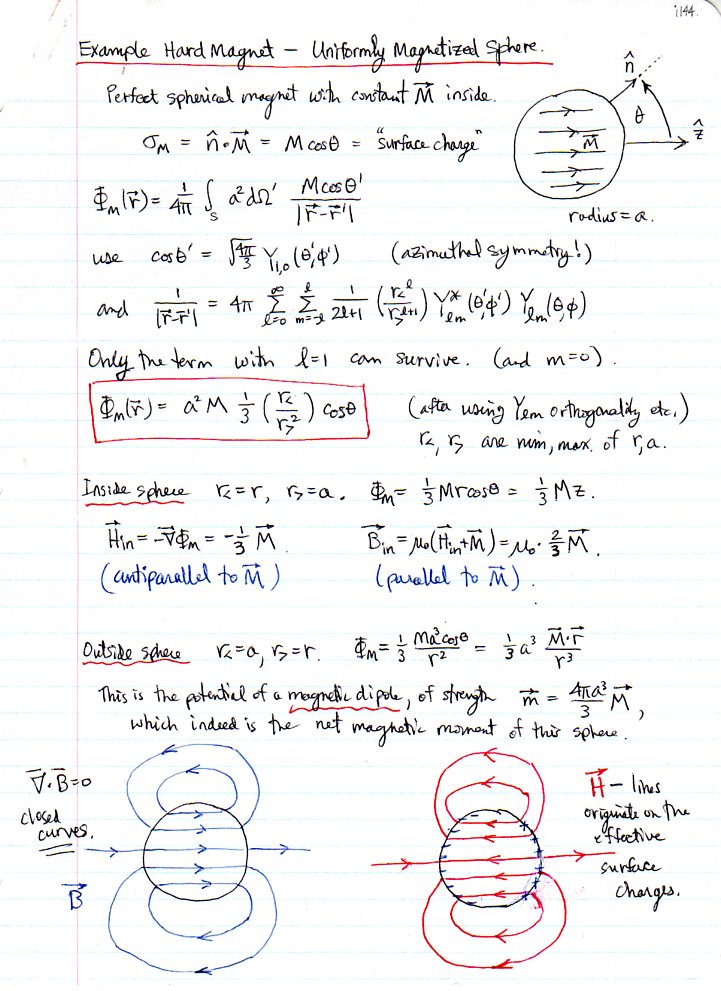 1144.
Example Hard Magnet – Uniformly Magnetized Sphere.
Perfect spherical magnet with constant M⃗ inside.
n̂
θ
ẑ
M⃗
radius = a.
σ_M = n̂ · M⃗ = M cosθ = "surface charge"
Φ_m(r⃗) = 1/4π ∫_S a² dΩ' M cosθ' / |r⃗-r⃗'|
use cosθ' = √(4π/3) Y_1,0(θ',φ') (azimuthal symmetry!)
and 1/|r⃗-r⃗'| = 4π Σ_{l=0}^{∞} Σ_{m=-l}^{l} 1/(2l+1) (r_<^l / r_>^{l+1}) Y*_lm(θ',φ') Y_lm(θ,φ)
Only the term with l=1 can survive. (and m=0).
Φ_m(r⃗) = a² M 1/3 (r_< / r_>²) cosθ (after using Y_lm orthogonality etc.)
r_<, r_> are min, max. of r, a.
Inside sphere r_< = r, r_> = a. Φ_m = 1/3 M r cosθ = 1/3 M z.
H⃗_in = -∇⃗Φ_m = -1/3 M⃗. B⃗_in = μ₀(H⃗_in + M⃗) = μ₀ · 2/3 M⃗.
(antiparallel to M⃗) (parallel to M⃗).
Outside sphere r_< = a, r_> = r. Φ_m = 1/3 Ma³cosθ / r² = 1/3 a³ M⃗·r⃗ / r³
This is the potential of a magnetic dipole, of strength m⃗ = 4πa³/3 M⃗,
which indeed is the net magnetic moment of this sphere.
∇⃗·B⃗ = 0
closed
curves.
B⃗
H⃗ – lines
originate on the
effective
surface
charges.